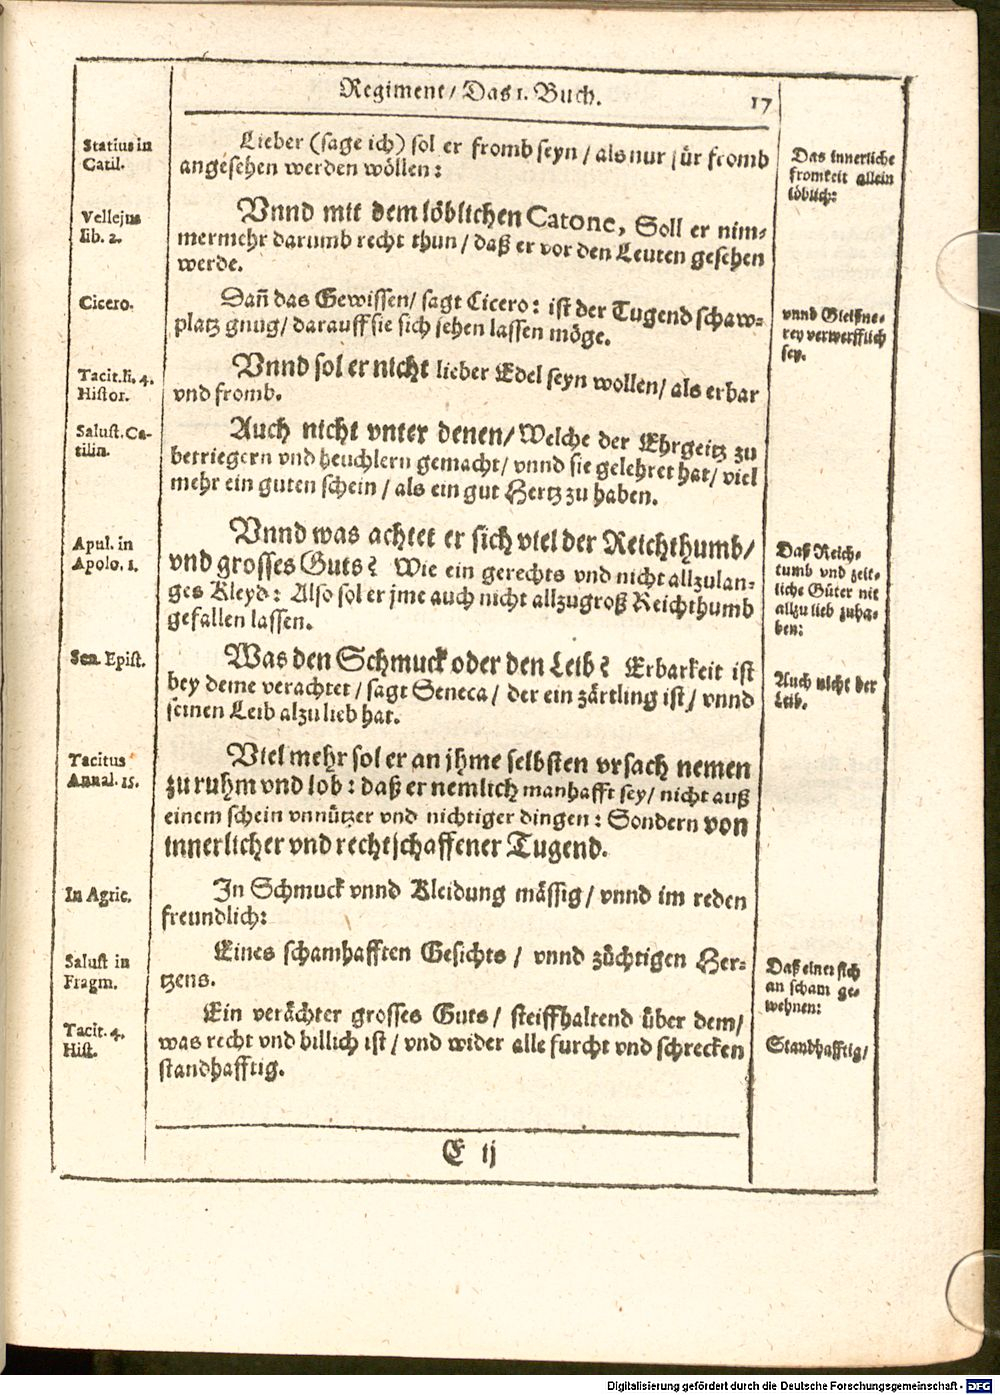 Regiment / Das 1. Buch.
17
Statius in
Catil.
Lieber (sage ich) sol er fromb seyn / als nur für fromb
angesehen werden wöllen:
Das innerliche
fromkeit allein
löblich:
Vellejus
lib. 2.
Vnnd mit dem löblichen Catone, Soll er nim-
mermehr darumb recht thun / daß er vor den Leuten gesehen
werde.
Cicero.
Dañ das Gewissen / sagt Cicero: ist der Tugend schaw-
platz gnug / darauff sie sich sehen lassen möge.
vnnd Gleißne-
rey verwerfflich
sey.
Tacit. li. 4.
Histor.
Vnnd sol er nicht lieber Edel seyn wollen / als erbar
vnd fromb.
Salust. Ca-
tilin.
Auch nicht vnter denen / Welche der Ehrgeitz zu
betriegern vnd heuchlern gemacht / vnnd sie gelehret hat / viel
mehr ein guten schein / als ein gut Hertz zu haben.
Apul. in
Apolo. 1.
Vnnd was achtet er sich viel der Reichthumb /
vnd grosses Guts? Wie ein gerechts vnd nicht allzulan-
ges Kleyd: Also sol er jme auch nicht allzugroß Reichthumb
gefallen lassen.
Daß Reich-
tumb vnd zeit-
liche Güter nit
allzu lieb zuha-
ben:
Sen. Epist.
Was den Schmuck oder den Leib? Erbarkeit ist
bey deme verachtet / sagt Seneca / der ein zärtling ist / vnnd
seinen Leib alzu lieb hat.
Auch nicht der
Leib.
Tacitus
Annal. 15.
Viel mehr sol er an jhme selbsten vrsach nemen
zu ruhm vnd lob: daß er nemlich manhafft sey / nicht auß
einem schein vnnützer vnd nichtiger dingen: Sondern von
innerlicher vnd rechtschaffener Tugend.
In Agric.
In Schmuck vnnd Kleidung mässig / vnnd im reden
freundlich:
Salust in
Fragm.
Eines schamhafften Gesichts / vnnd züchtigen Her-
tzens.
Daß einer sich
an scham ge-
wehnen:
Tacit. 4.
Hist.
Ein verächter grosses Guts / steiffhaltend über dem /
was recht vnd billich ist / vnd wider alle furcht vnd schrecken
standhafftig.
Standhafftig /
E ij
Digitalisierung gefördert durch die Deutsche Forschungsgemeinschaft - DFG